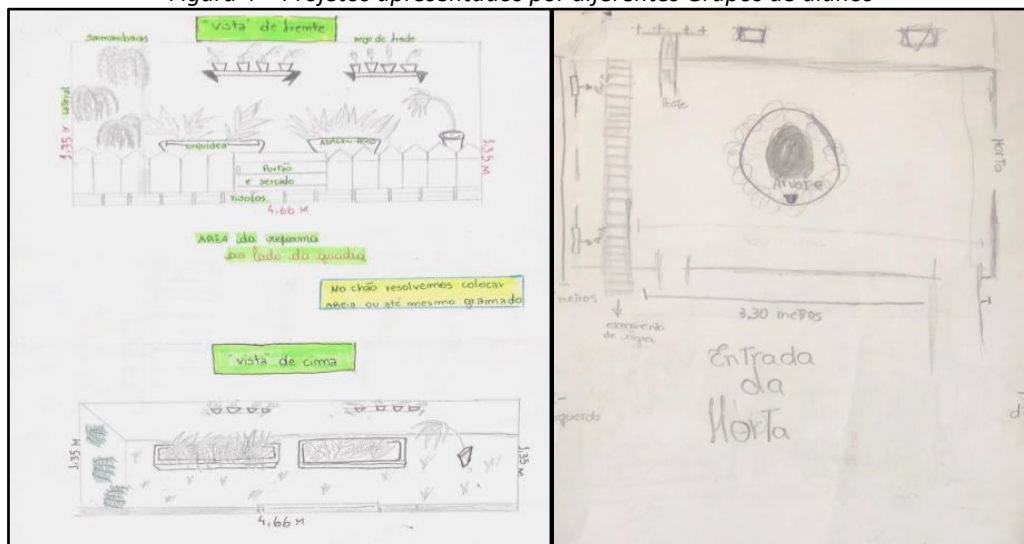 Figura 4 – Projetos apresentados por diferentes Grupos de alunos
"vista" de frente
samambaias
lateral
1,35 M
1,35 M
orquídea
Portão
e cercado
tijolos
4,66 M
AREA da reforma
ao lado da quadra
No chão resolvemos colocar
AREIA ou até mesmo gramado
"vista" de cima
1,35 M
1,35 M
4,66 M
Poste
Horta
Árvore
metros
3,30 metros
de água
Entrada
da
Horta